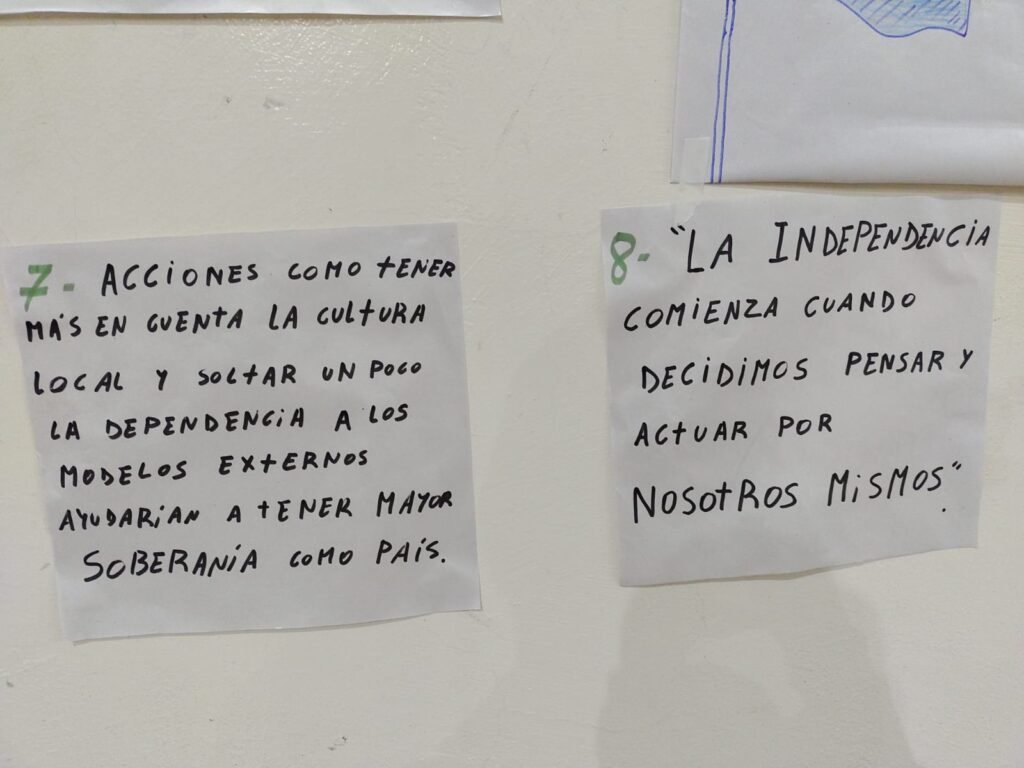 7- ACCIONES COMO TENER
MÁS EN CUENTA LA CULTURA
LOCAL Y SOLTAR UN POCO
LA DEPENDENCIA A LOS
MODELOS EXTERNOS
AYUDARÍAN A TENER MAYOR
SOBERANÍA COMO PAÍS.
8- "LA INDEPENDENCIA
COMIENZA CUANDO
DECIDIMOS PENSAR Y
ACTUAR POR
NOSOTROS MISMOS".